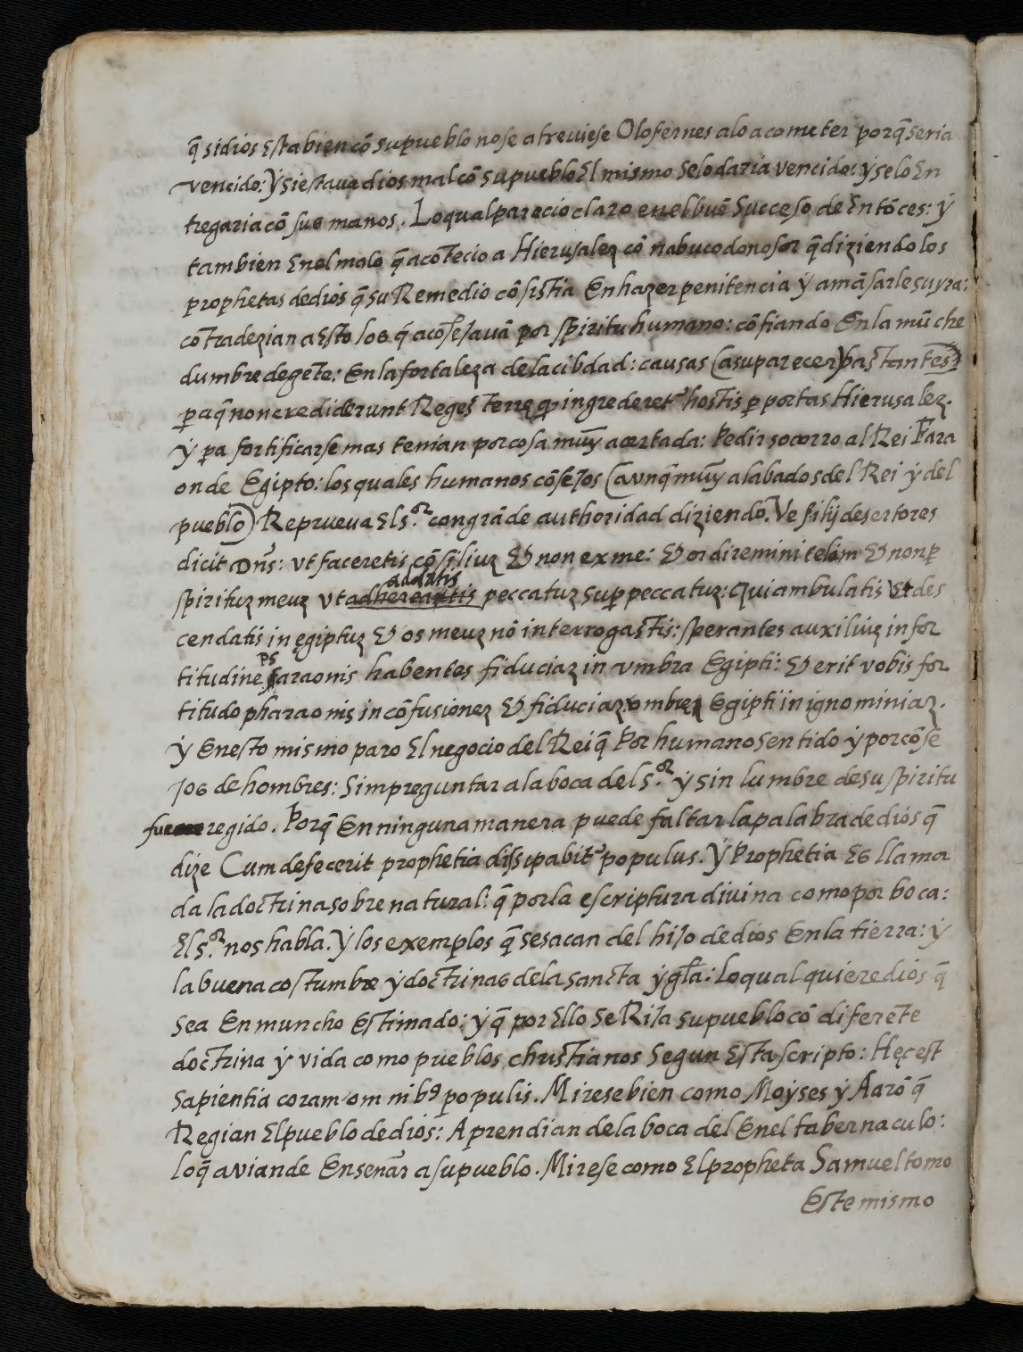 q̃ si dios esta bien cõ su pueblo no se atreuiese Olofernes a lo acometer porq̃ seria
vencido: ẏ si estaua dios mal cõ su pueblo El mismo se lo daria vencido: ẏ se lo En
tregaria cõ sus manos. Lo qual parecio claro en el buẽ Succeso de Entõces: ẏ
tambien En el malo q̃ acõtecio a Hierusalez cõ nabucodonosor q̃ diziendo los
prophetas de dios q̃ su Remedio cõsistia En hazer penitencia ẏ amãsarle su yra:
cõtradezian a Esto los q̃ acõsejauã por spiritu humano: cõfiando En la muche
dumbre de gẽte: En la fortaleza de la cibdad: causas (a su parecer) bastantes
paq̃ non crediderunt Reges terrę qp ingrederetᵉ hostis p portas Hierusalez.
ẏ pa fortificarse mas tenian por cosa muẏ acertada: Pedir socorro al Rei Fara
on de Egipto: los quales humanos cõsejos (avnq̃ muẏ alabados del Rei ẏ del
pueblo) Reprueua El s.ᵒʳ con grãde authoridad diziendo. Ve filij desertores
dicit Dñs: vt faceretis cõsiliuz & non ex me: & ordiremini telam & non p
spirituz meuz vt adderetis addatis peccatuz sup peccatuz: Qui ambulatis vt des
cendatis in ęgiptuz & os meuz nõ interrogastis: sperantes auxiliuz in for
titudine pharaonis habentes fiduciaz in vmbra Egipti: & erit vobis for
titudo pharaonis in cõfusionez & fiducia vmbrę Egipti in ignominiaz.
ẏ En esto mismo paro El negocio del Rei q̃ Por humano sentido ẏ por cõse
jos de hombres: Sim preguntar a la boca del s.ᵒʳ ẏ sin lumbre de su spiritu
fue regido. Porq̃ En ninguna manera puede faltar la palabra de dios q̃
dize Cum defecerit prophetia dissipabitᵉ populus. ẏ Prophetia es llama
da la doctrina sobrenatural: q̃ por la escriptura divina como por boca:
El s.ᵒʳ nos habla. ẏ los exemplos q̃ se sacan del hijo de dios En la tierra: ẏ
la buena costumbre ẏ doctrinas de la sancta ẏgl̃a: lo qual quiere dios q̃
sea En muncho Estimado: ẏ q̃ por Ello se Rija su pueblo cõ diferẽte
doctrina ẏ vida como pueblos christianos Segun Esta scripto: Hęc est
sapientia coram omnibꝰ populis. Mirese bien como Moẏses ẏ Aarõ q̃
Regian El pueblo de dios: Aprendian de la boca del En el tabernaculo:
lo q̃ avian de Enseñar a su pueblo. Mirese como El propheta Samuel tomo
Este mismo